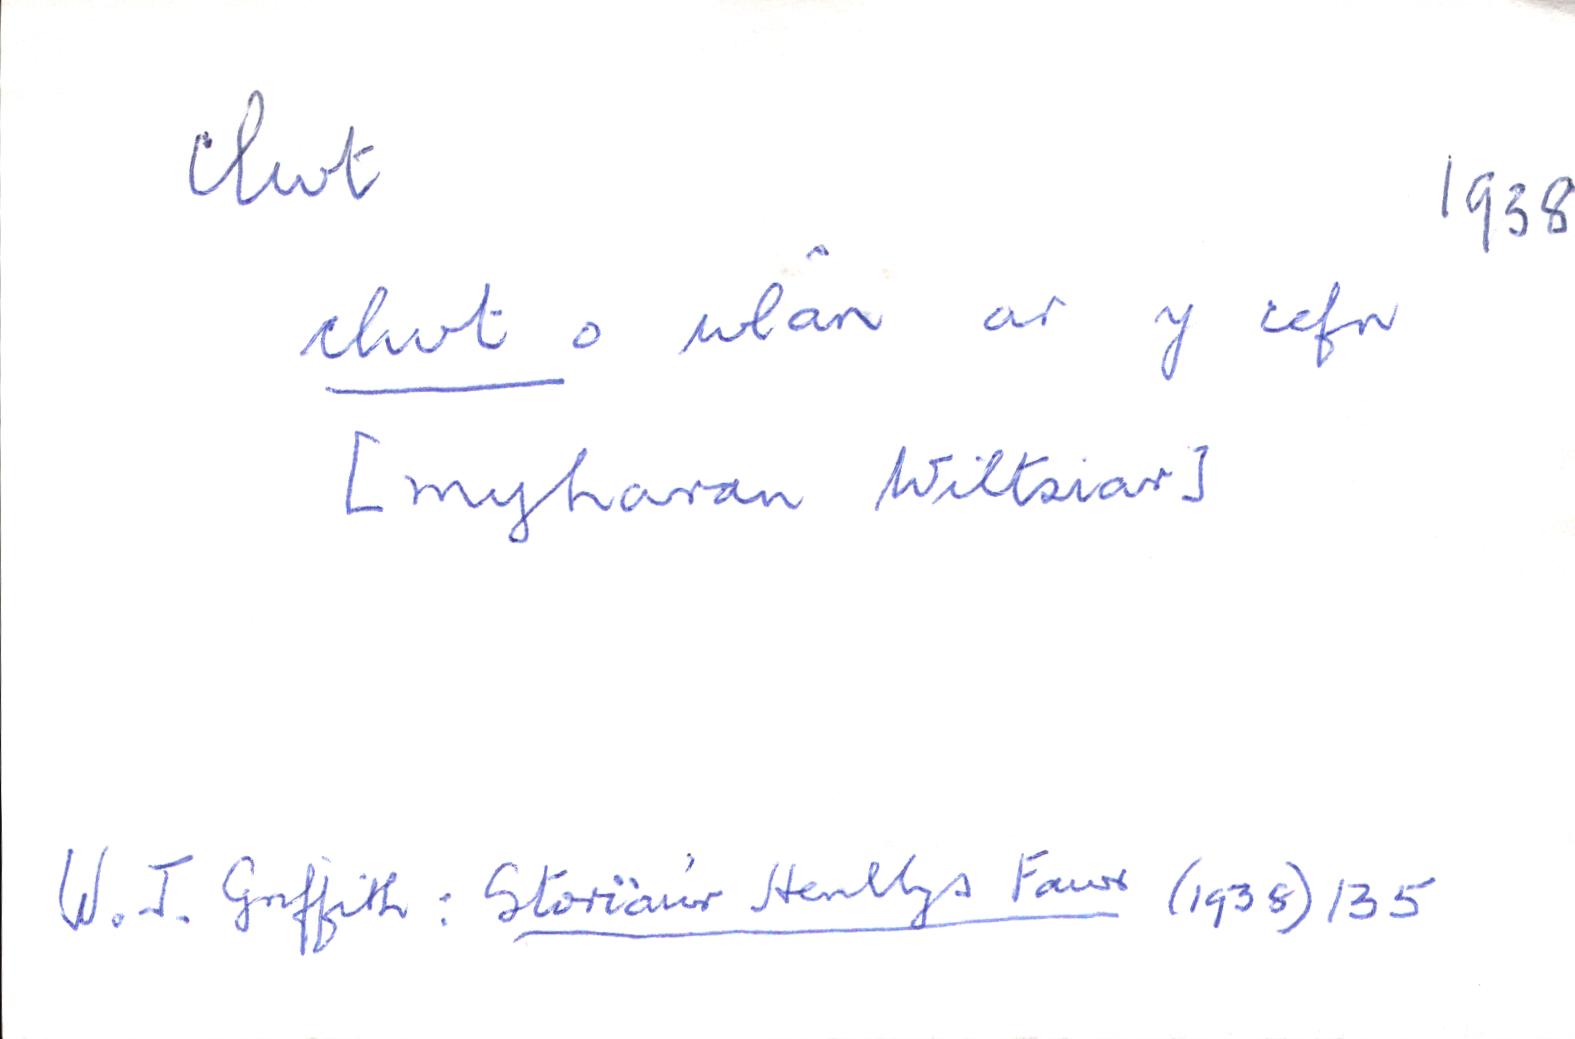 clwt
1938
clwt o wlân ar y cefn
[myharan Wiltsiar]
W. J. Griffith: Storïau'r Henllys Fawr (1938) 135